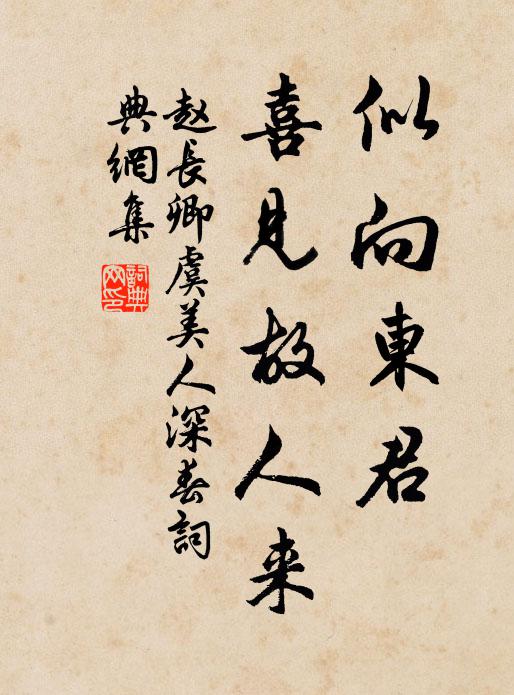 似向東君
喜見故人来
赵長卿虞美人深春詞
典網集
詞典網印